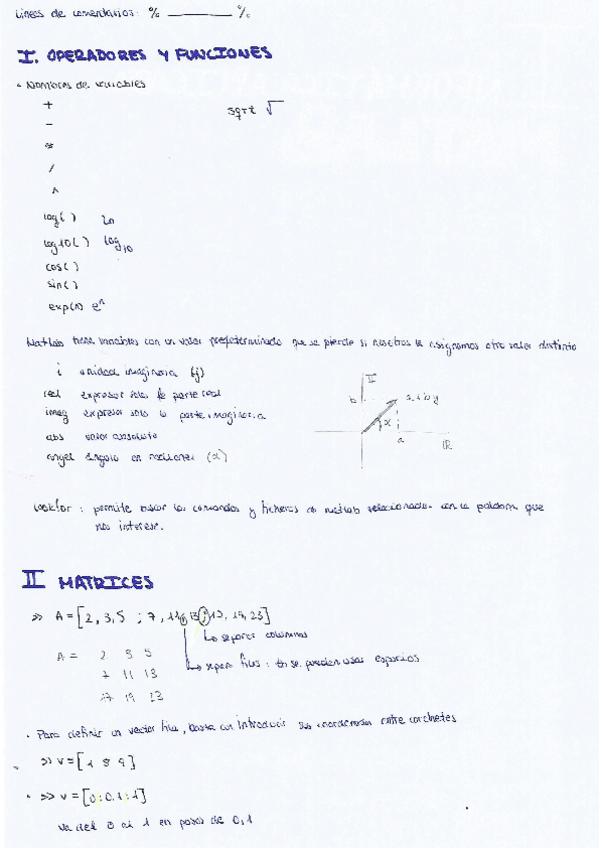 Líneas de comentarios: % ———— %
I. OPERADORES Y FUNCIONES
• Nombres de variables
+
sqrt √
-
*
/
^
log( ) Ln
log10( ) log10
cos( )
sin( )
exp(n) e^n
Matlab tiene variables con un valor predeterminado que se pierde si nosotros le asignamos otro valor distinto
i unidad imaginaria (j)
real expresar solo la parte real
imag expresar solo la parte imaginaria
abs valor absoluto
angel ángulo en radianes (α)
I
b
α
a
IR
lookfor : permite buscar los comandos y ficheros de matlab relacionados con la palabra que
nos interese.
II MATRICES
>> A = [2, 3, 5 ; 7, 11, 13 ; 17, 19, 23]
↳ separar columnas
↳ separa filas : tb se pueden usar espacios
A = 2 3 5
7 11 13
17 19 23
• Para definir un vector fila, basta con introducir sus coordenadas entre corchetes
>> v = [1 8 9]
• >> v = [0:0.1:1]
va del 0 al 1 en pasos de 0,1